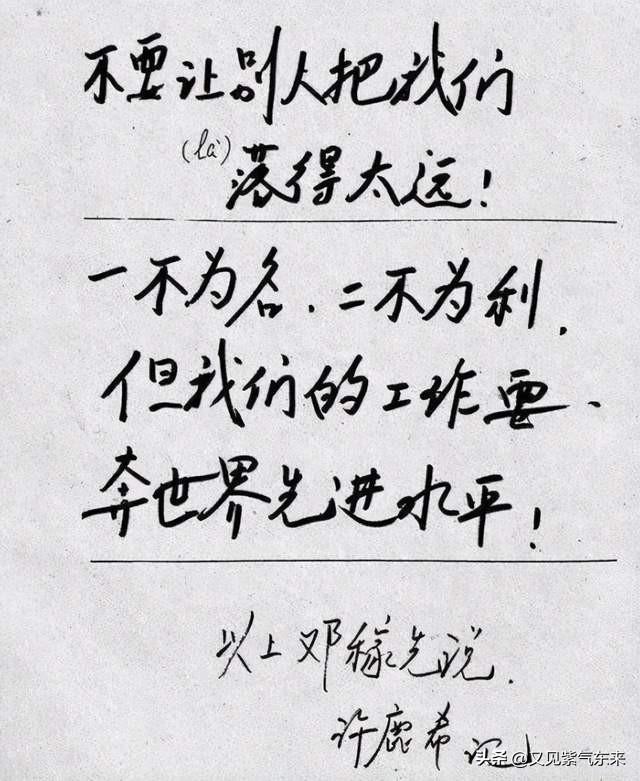 不要让别人把我们
(là)落得太远！
一不为名．二不为利，
但我们的工作要、
奔世界先进水平！
以上邓稼先说．
许鹿希记
头条@又见紫气东来